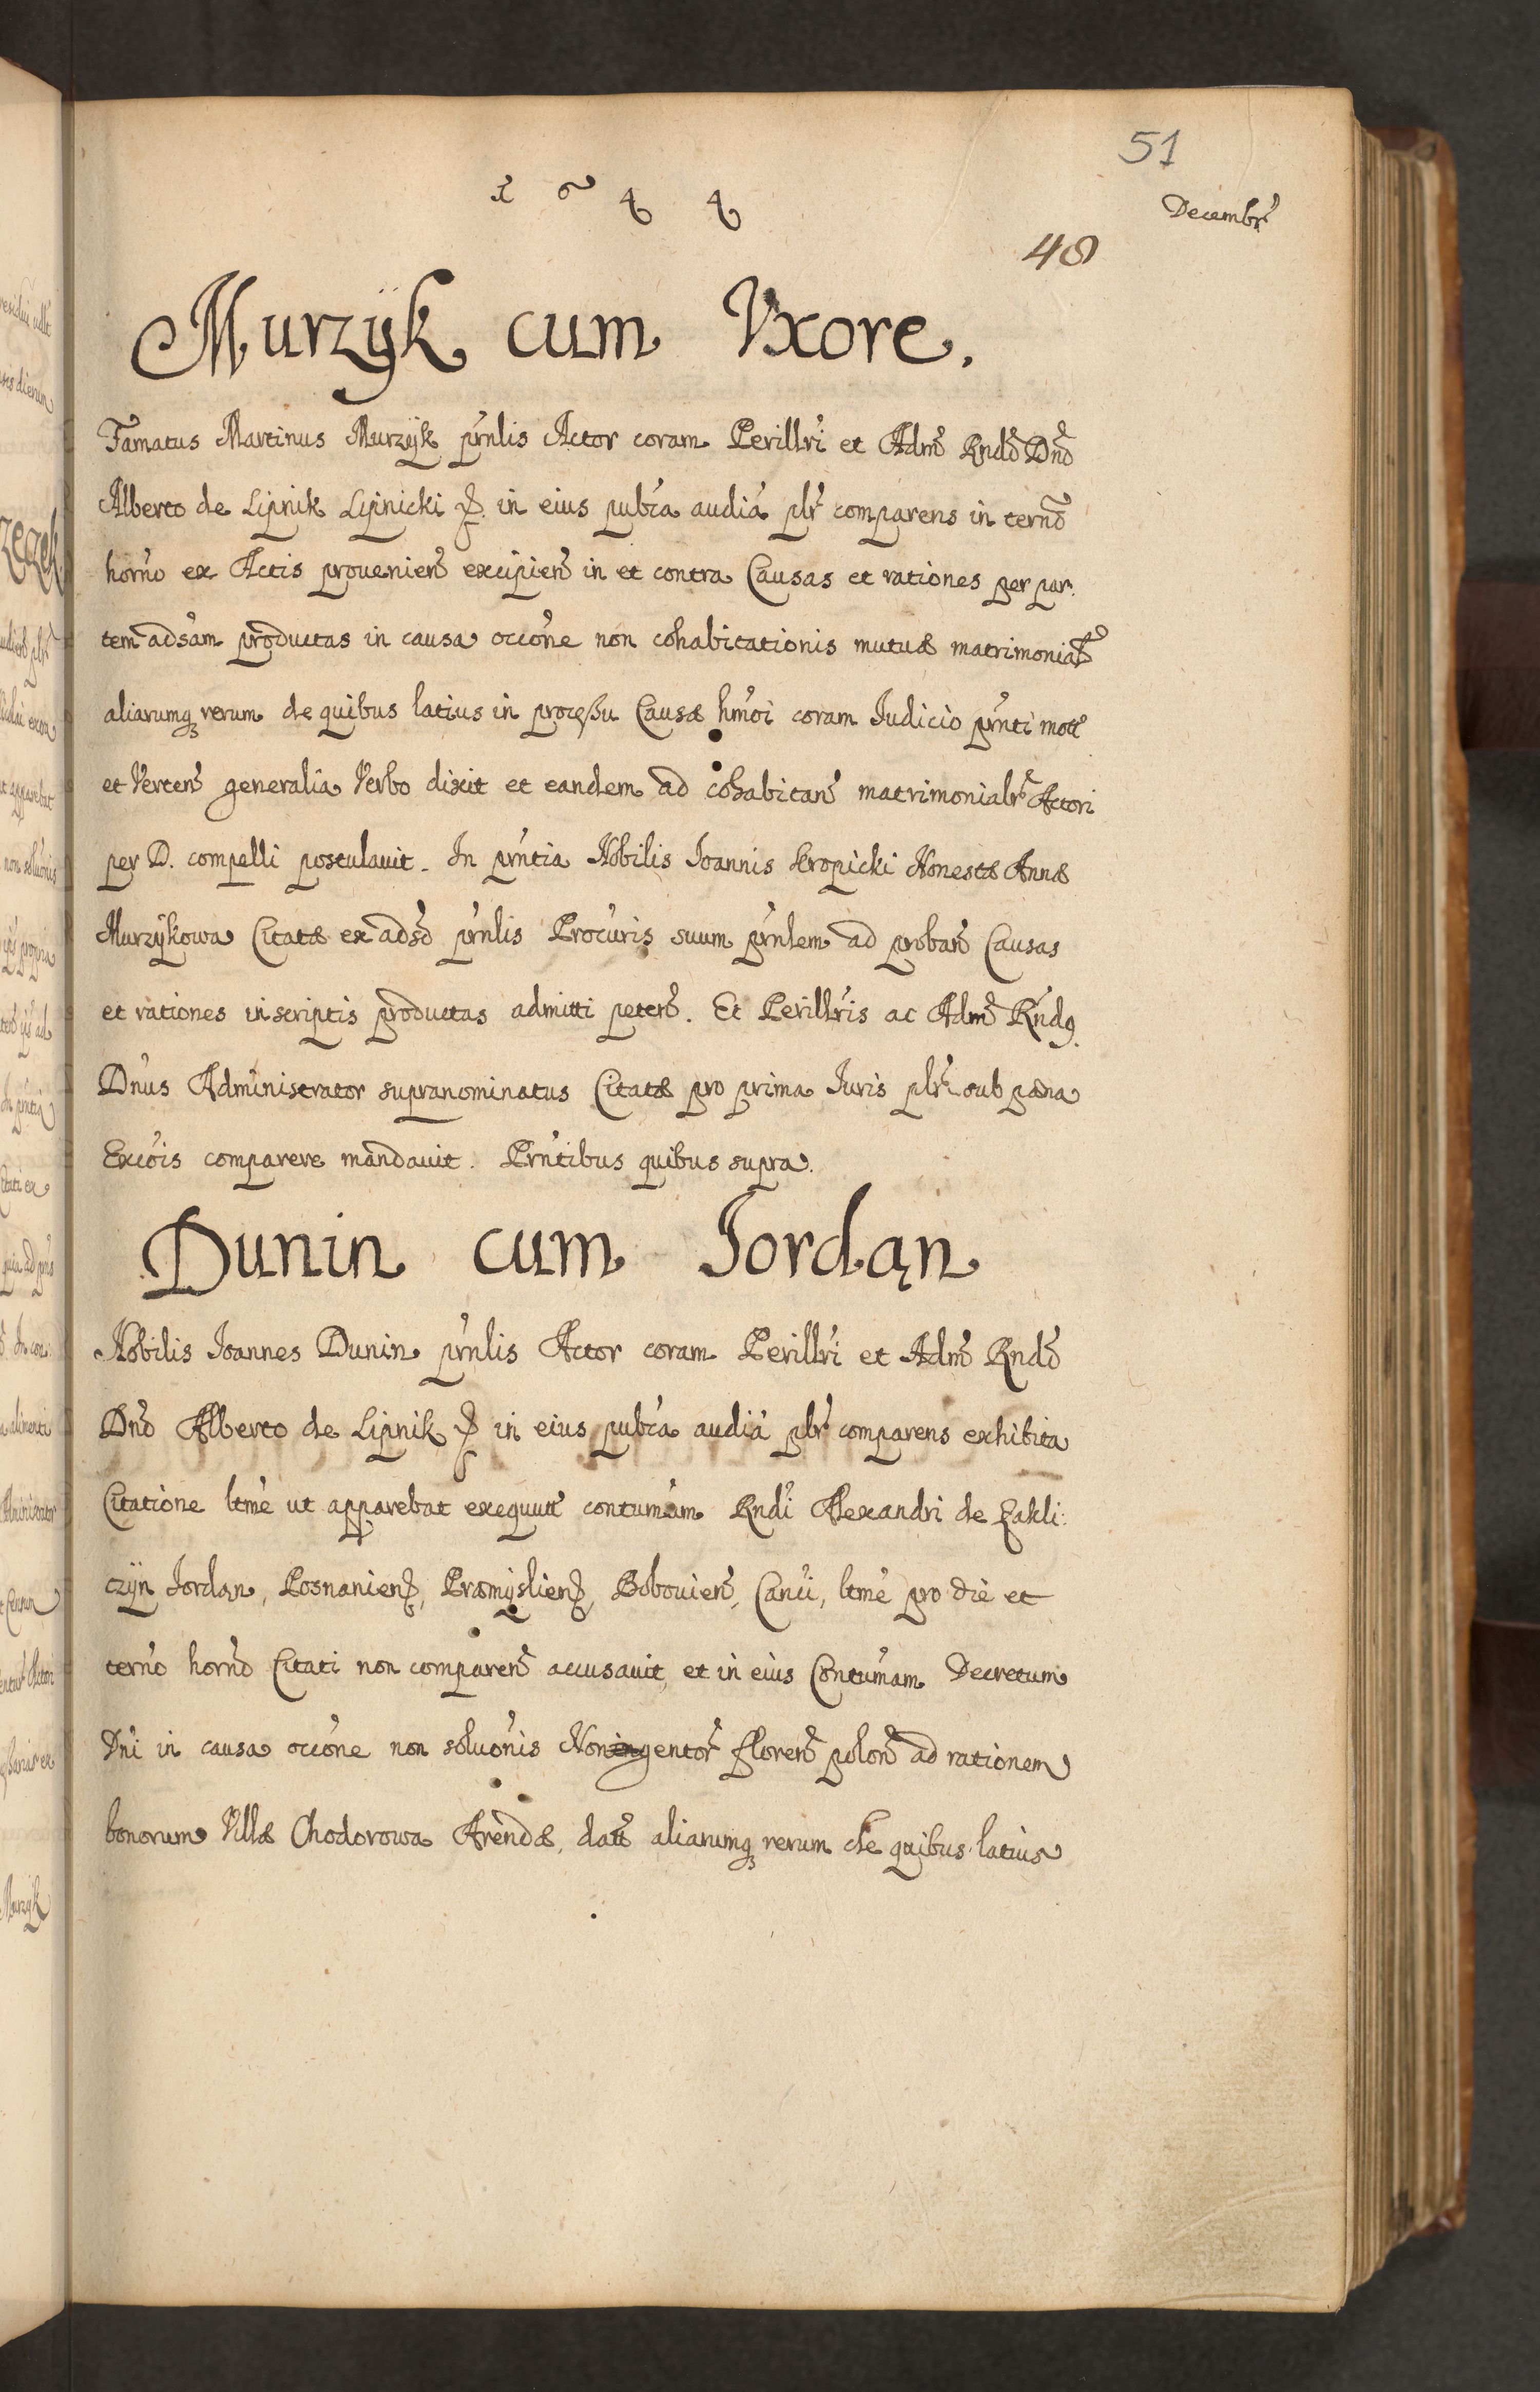 51
Decembr̃
1 6 4 4
48
Murzÿk cum Vxore.
Famatus Martinus Murzÿk prńlis Actor coram Perillrĩ et Adm̃ Rndõ Dnõ
Alberto de Lipnik Lipnicki in eius publca audiã plr̃ comparens in terñ
horño ex Actis proueniens̃ excipiens̃ in et contra Causas et rationes per par:
tem adsam productas in causa occone non cohabitationis mutuæ matrimonial̃
aliarumq rerum de quibus latius in processu Causæ hmoi coram Iudicio prnti mot̃
et Vertens̃ generalia Verbo dixit et eandem ad cohabitan̄ matrimonialr̃ Actori
per D. compelli postulauit. In prntia Nobilis Ioannis Kropicki Honestæ Annæ
Murzÿkowa Citatæ ex adsõ prnlis Procuris suum prnlem ad proban̄ Causas
et rationes in scriptis productas admitti peten̄. Et Perillris ac Adm̃ Rndq
Dnus Administrator supranominatus Citatæ pro prima Iuris plr̃ sub pæna
Excois comparere mandauit. Prntibus quibus supra.
Dunin cum Jordąn
Nobilis Ioannes Dunin prnlis Actor coram Perillri et Adm̃ Rndõ
Dnõ Alberto de Lipnik in eius publca audiã plr̃ comparens exhibita
Citatione ltme ut apparebat exequut̃ contumam Rndi Alexandri de Zakli:
czÿn Jordąn, Posnanien̄, Præmÿslien̄, Bobouien̄, Canci, ltme pro die et
terño horño Citati non comparen̄ accusauit, et in eius Contumam Decretum
Dni in causa occone non soluonis Noningentor̃ floren̄ polon̄ ad rationem
bonorum Villæ Chodorowa Arendæ, dat̃ aliarumq rerum de quibus latius